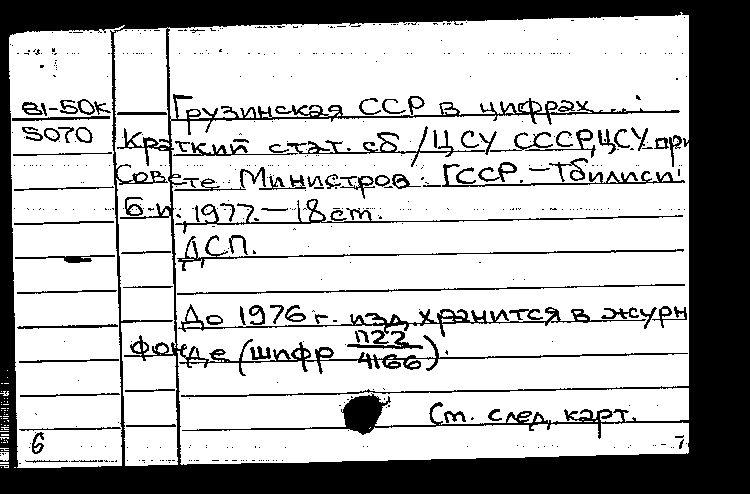 81-50к Грузинская ССР в цифрах...:
5070 Краткий стат. сб./ЦСУ СССР, ЦСУ при
Совете Министров ГССР. — Тбилиси:
Б-и., 1977. — 18 см.
ДСП.
До 1976 г. изд. хранится в журн
фонде (шифр П22
4166).
См. след. карт.
6
7